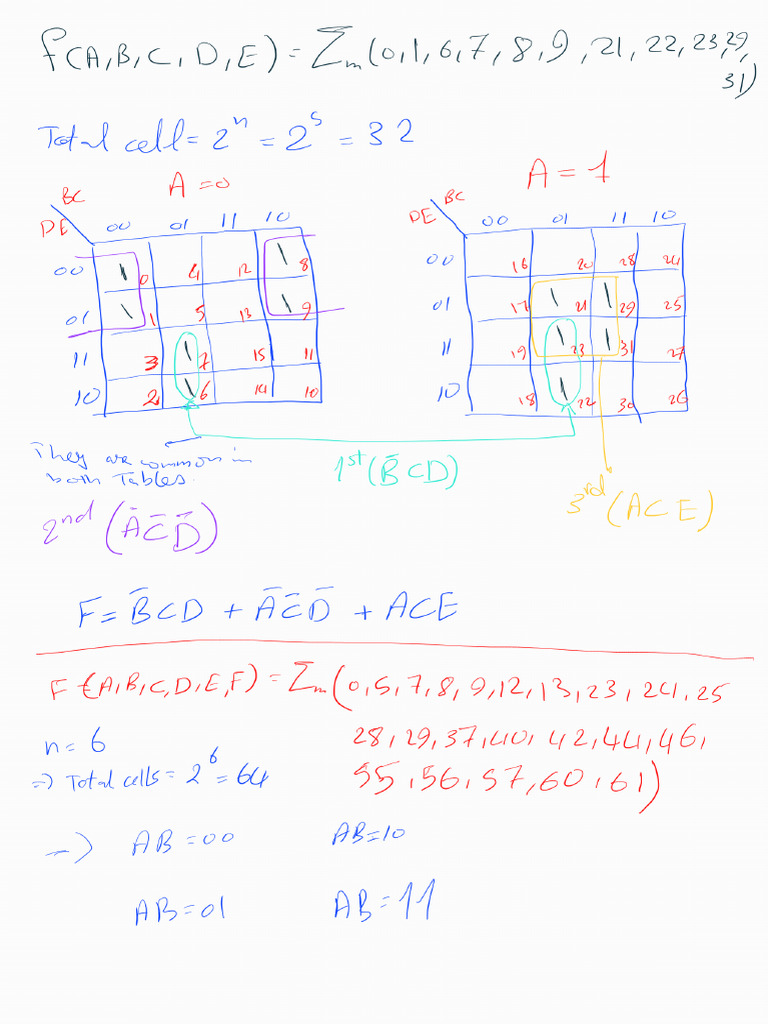 f(A,B,C,D,E) = Σm(0,1,6,7,8,9,21,22,23,29,
31)
Total cell = 2^n = 2^5 = 32
A = 0
A = 1
BC
DE 00 01 11 10
00 \ 0 4 12 \ 8
01 \ 1 5 13 \ 9
11 3 \ 7 15 11
10 2 \ 6 14 10
BC
DE 00 01 11 10
00 16 20 28 24
01 17 \ 21 \ 29 25
11 19 \ 23 \ 31 27
10 18 \ 22 30 26
They are common in
both Tables.
1st (B̄CD)
2nd (ĀC̄D̄)
3rd (ACE)
F = B̄CD + ĀC̄D̄ + ACE
F (A,B,C,D,E,F) = Σm(0,5,7,8,9,12,13,23,24,25
28,29,37,40,42,44,46,
55,56,57,60,61)
n = 6
=> Total cells = 2^6 = 64
-> AB = 00 AB = 10
AB = 01 AB = 11